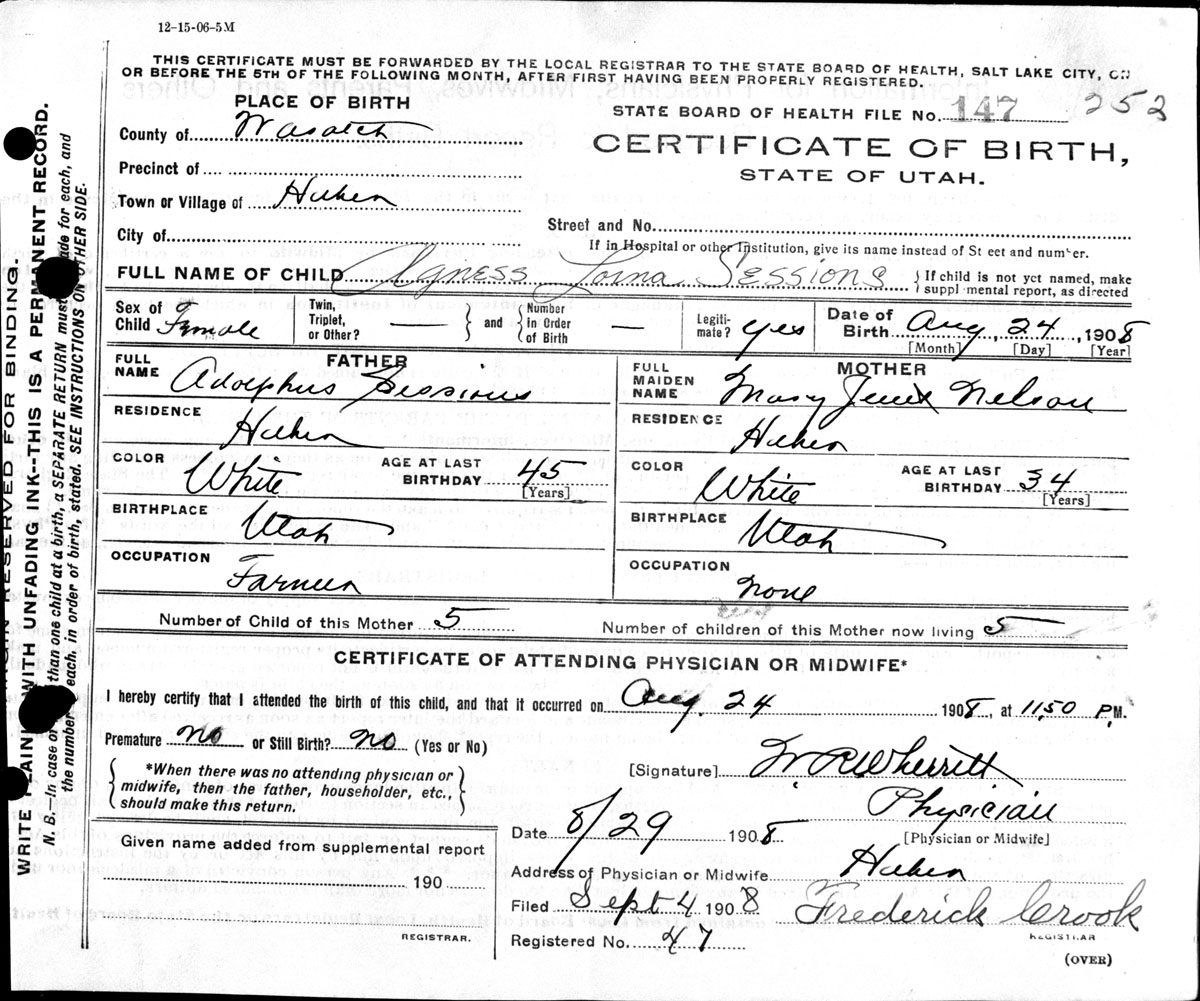 12-15-06-5M
THIS CERTIFICATE MUST BE FORWARDED BY THE LOCAL REGISTRAR TO THE STATE BOARD OF HEALTH, SALT LAKE CITY, ON
OR BEFORE THE 5TH OF THE FOLLOWING MONTH, AFTER FIRST HAVING BEEN PROPERLY REGISTERED.
PLACE OF BIRTH
STATE BOARD OF HEALTH FILE No. 147 252
County of Wasatch
CERTIFICATE OF BIRTH,
STATE OF UTAH.
Precinct of
Town or Village of Heber
Street and No.
City of
If in Hospital or other Institution, give its name instead of St eet and number.
FULL NAME OF CHILD Agness Lorna Sessions { If child is not yet named, make
suppl mental report, as directed
Sex of Child Female Twin, Triplet, or Other? — and Number in Order of Birth — Legiti- mate? yes Date of Birth Aug, 24, 1908
[Month] [Day] [Year]
FATHER
FULL NAME Adolphus Sessions
RESIDENCE
Heber
COLOR White AGE AT LAST BIRTHDAY 45
[Years]
BIRTHPLACE
Utah
OCCUPATION
Farmer
MOTHER
FULL MAIDEN NAME Mary Nelson
RESIDENCE
Heber
COLOR White AGE AT LAST BIRTHDAY 34
[Years]
BIRTHPLACE
Utah
OCCUPATION
None
Number of Child of this Mother 5
Number of children of this Mother now living 5
CERTIFICATE OF ATTENDING PHYSICIAN OR MIDWIFE*
I hereby certify that I attended the birth of this child, and that it occurred on Aug. 24 1908, at 11,50 P.M.
Premature no or Still Birth? no (Yes or No)
*When there was no attending physician or
midwife, then the father, householder, etc.,
should make this return.
[Signature] W R Wherritt
Physician
[Physician or Midwife]
Date 8/29 1908
Address of Physician or Midwife Heber
Filed Sept 4 1908 Frederick Crook
REGISTRAR
Registered No. 47
(OVER)
Given name added from supplemental report
190
REGISTRAR.
MARGIN RESERVED FOR BINDING.
WRITE PLAINLY WITH UNFADING INK--THIS IS A PERMANENT RECORD.
N. B.—In case of more than one child at a birth, a SEPARATE RETURN must be made for each, and
the number of each, in order of birth, stated. SEE INSTRUCTIONS ON OTHER SIDE.